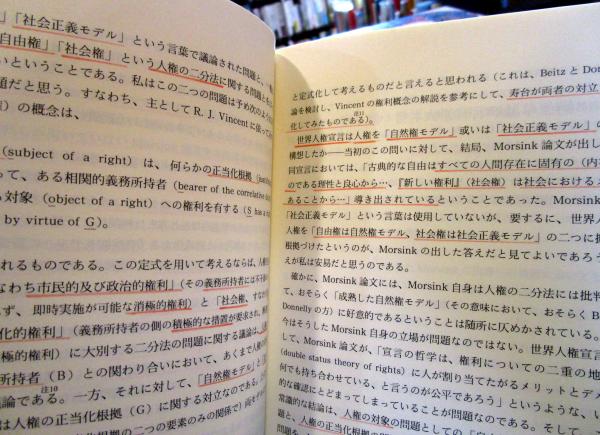 」「社会正義モデル」という言葉で議論された問題と、
自由権」「社会権」という人権の二分法に関する問題と
いということである。私はこの二つの問題は予め次のように
題だと思う。すなわち、主として R. J. Vincent に依って
の概念は、
(subject of a right) は、何らかの正当化根拠
って、ある相関的義務所持者 (bearer of the correlative
対象 (object of a right) への権利を有する (S has a
by virtue of G)。
れるものである。この定式を用いて考えるならば、人権
なわち市民的及び政治的権利」(その義務所持者には不
ず、即時実施が可能な消極的権利) と「社会権、すな
化的権利」(義務所持者の側の積極的な措置が要求され、
極的権利) に大別する二分法の問題に関する議論は、
所持者 (B) との関わり合いにおいて、あくまで人権の
論である。注10 一方、それに対して、「自然権モデル」と
は人権の正当化根拠 (G) に関する対立なのである。
の二つの要素のみの関係で) 両
と定式化して考えるものだと言えると思われる (これは、Beitz と Don
論を検討し、Vincent の権利概念の解説を参考にして、寿台が両者の対立
化してみたものである)。注11
世界人権宣言は人権を「自然権モデル」或いは「社会正義モデル」の
構想したか――当初のこの問いに対して、結局、Morsink 論文が出し
同宣言においては、「古典的な自由はすべての人間存在に固有の (内
のである理性と良心から…、『新しい権利』(社会権) は社会における
あることから…」導き出されているということであった。Morsink
「社会正義モデル」という言葉は使用していないが、要するに、世界人
人権を「自由権は自然権モデル、社会権は社会正義モデル」の二つに
根拠づけたというのが、Morsink の出した答えだと見てよいであろう
えが私は安易だと思うのである。
確かに、Morsink 論文には、Morsink 自身は人権の二分法には批判
て、おそらく「成熟した自然権モデル」(その意味において、おそらく B
Donnelly の方) に好意的であるということは随所に仄めかされている。
今はそうした Morsink 自身の立場が問題なのではない。世界人権宣言
て、Morsink 論文が、「宣言の哲学は、権利についての二重の地
(double status theory of rights) に人が割り当てたがるメリットとデメ
何でも持ち合わせている、と言うのが公平であろう」というような、い
的な確認にとどまってしまっていることが問題なのである。そして、
常識的な結論は、人権の対象の問題としての「
題と、人権の正当化根拠の問題としての